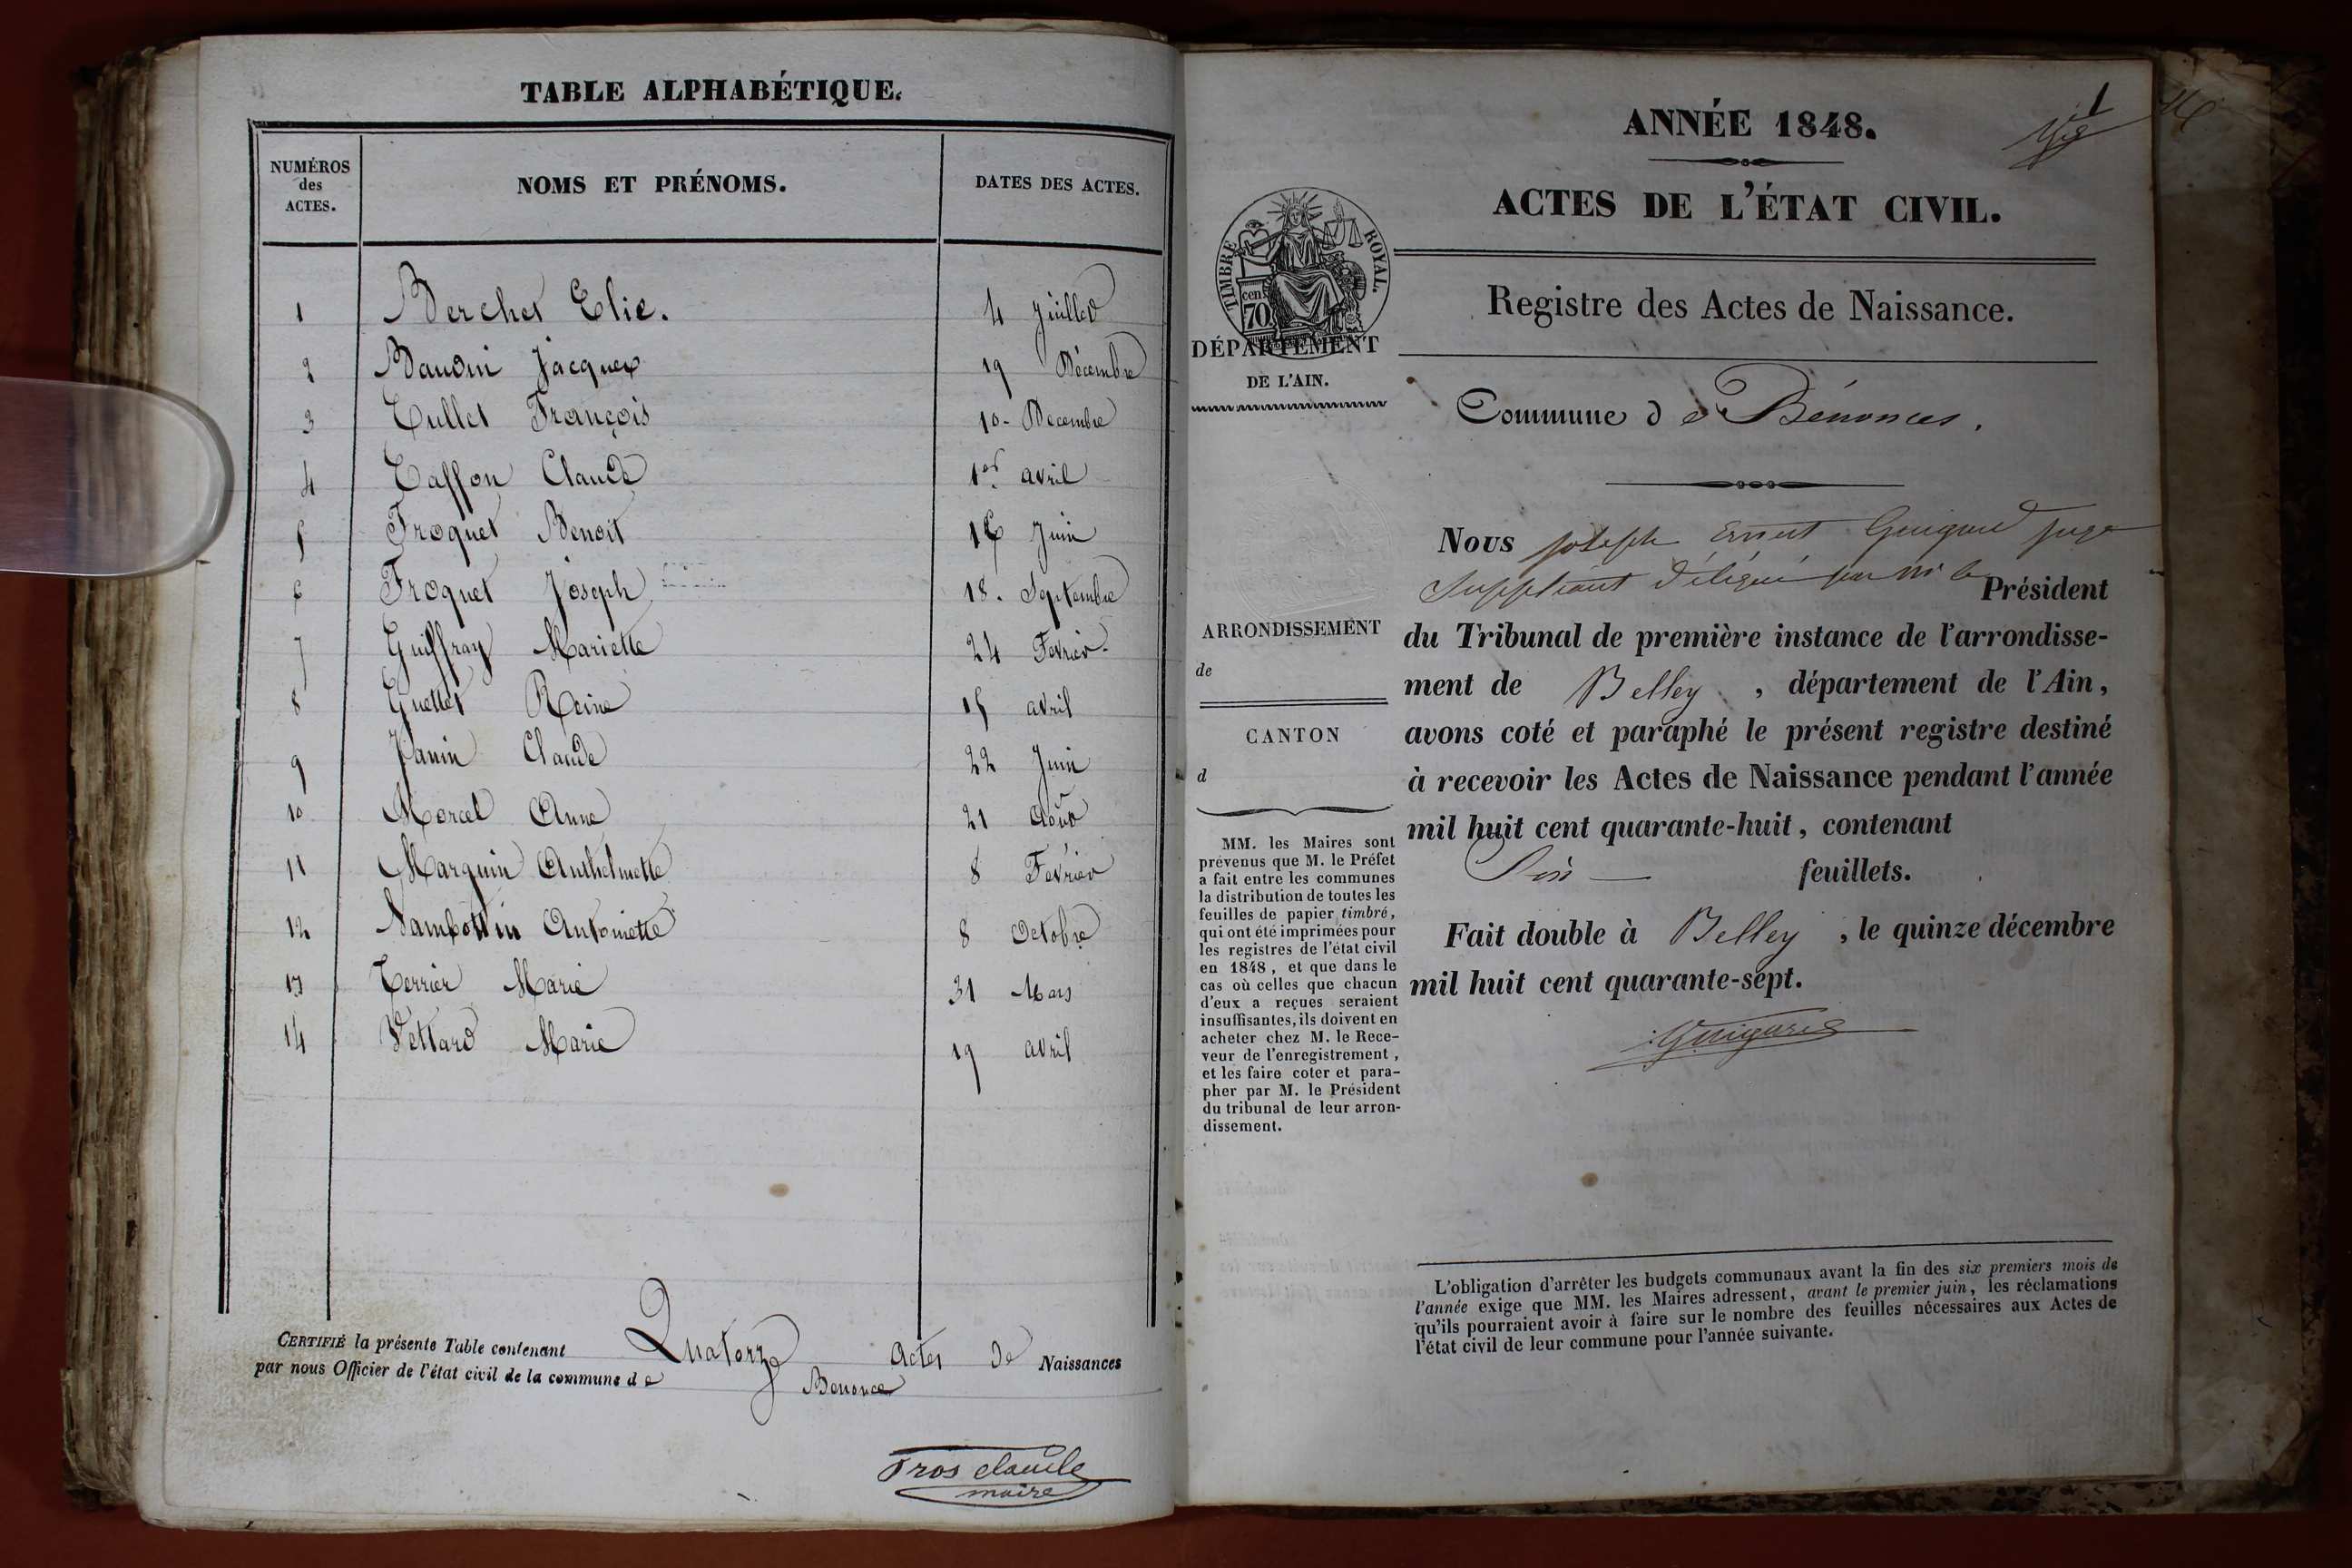 TABLE ALPHABÉTIQUE.
NUMÉROS
des
ACTES.
NOMS ET PRÉNOMS.
DATES DES ACTES.
1 Berchet Elie. 4 Juillet
2 Baudin Jacques 19 Décembre
3 Cullet François 10 - Decembre
4 Caffon Claude 1er avril
5 Froquet Benoit 16 Juin
6 Froquet Joseph 18. Septembre
7 Guiffray Mariette 24 Fevrier.
8 Guettet Reine 15 avril
9 Janin Claude 22 Juin
10 Morcel Anne 21 Août
11 Marquin Anthelmette 8 Fevrier
12 Nambottin Antoinette 8 Octobre
13 Terrier Marie 31 Mars
14 Vettard Marie 19 avril
CERTIFIÉ la présente Table contenant Quatorze actes de Naissances
par nous Officier de l'état civil de la commune de Benonce
Tros claude
maire
1
ANNÉE 1848.
ACTES DE L'ÉTAT CIVIL.
TIMBRE ROYAL.
cen.
70
Registre des Actes de Naissance.
DÉPARTEMENT
DE L'AIN.
Commune de Bénonces.
Nous joseph Ernest Guigard juge
Suppléant délégué par Mr le Président
du Tribunal de première instance de l'arrondisse-
ment de Belley, département de l'Ain,
avons coté et paraphé le présent registre destiné
à recevoir les Actes de Naissance pendant l'année
mil huit cent quarante-huit, contenant
feuillets.
Fait double à Belley, le quinze décembre
mil huit cent quarante-sept.
ARRONDISSEMENT
de
CANTON
d
MM. les Maires sont
prévenus que M. le Préfet
a fait entre les communes
la distribution de toutes les
feuilles de papier timbré,
qui ont été imprimées pour
les registres de l'état civil
en 1848, et que dans le
cas où celles que chacun
d'eux a reçues seraient
insuffisantes, ils doivent en
acheter chez M. le Rece-
veur de l'enregistrement,
et les faire coter et para-
pher par M. le Président
du tribunal de leur arron-
dissement.
L'obligation d'arrêter les budgets communaux avant la fin des six premiers mois de
l'année exige que MM. les Maires adressent, avant le premier juin, les réclamations
qu'ils pourraient avoir à faire sur le nombre des feuilles nécessaires aux Actes de
l'état civil de leur commune pour l'année suivante.